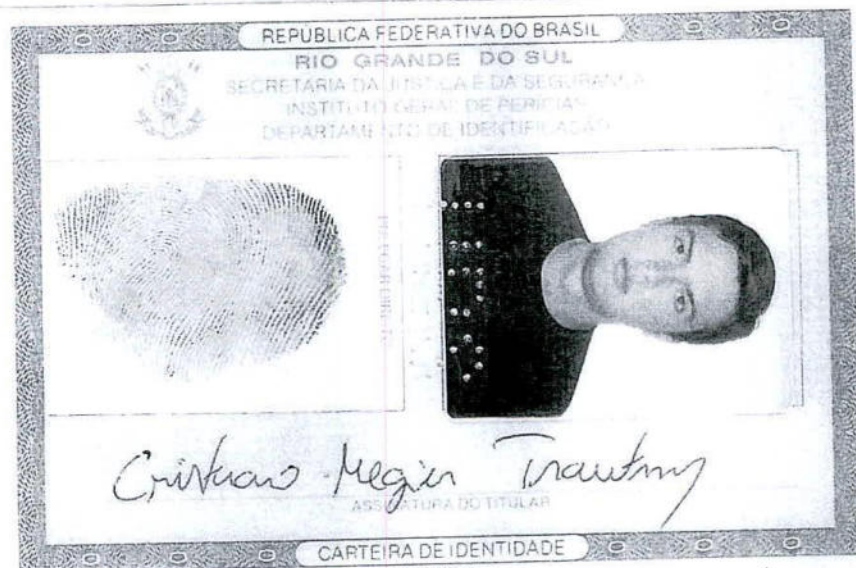 REPÚBLICA FEDERATIVA DO BRASIL
RIO GRANDE DO SUL
SECRETARIA DA JUSTIÇA E DA SEGURANÇA
INSTITUTO GERAL DE PERÍCIAS
DEPARTAMENTO DE IDENTIFICAÇÃO
POLEGAR DIREITO
Cristiano Megier Trautmy
ASSINATURA DO TITULAR
CARTEIRA DE IDENTIDADE